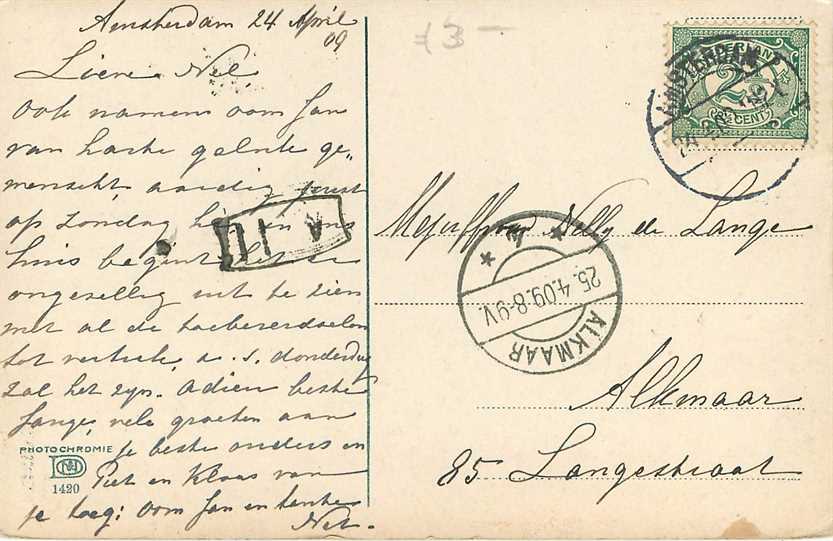 Amsterdam 24 April
09
Lieve Nel
Ook namens oom Jan
van harte gelukge-
wenscht, aardig juist
op Zondag hè in ons
huis begint het er
ongezellig uit te zien
met al de
tot vertrek, a. s. donderdag
zal het zijn. Adieu beste
Jange, vele groeten aan
je beste ouders en
Piet en Klaas van
je toeg: Oom Jan en tante
Net.
PHOTOCHROMIE
1420
73 -
NEDERLAND
2½
CENT
AMSTERDAM
Mejuffrouw Nelly de Lange
ALKMAAR
25.4.09.8-9V.
Alkmaar
85 Langestraat